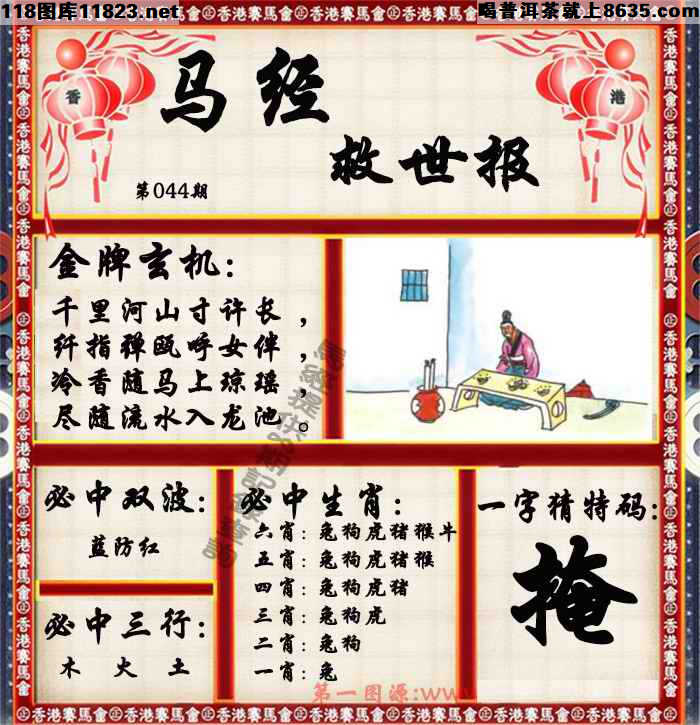 118图库11823.net
喝普洱茶就上8635.com
香港賽馬會
香
港
马经
救世报
第044期
金牌玄机：
千里河山寸许长，
纤指弹瓯呼女伴，
冷香随马上琼瑶，
尽随流水入龙池。
必中双波：
蓝防红
必中三行：
木 火 土
必中生肖：
六肖：兔狗虎猪猴牛
五肖：兔狗虎猪猴
四肖：兔狗虎猪
三肖：兔狗虎
二肖：兔狗
一肖：兔
一字猜特码：
掩
第一图源:www